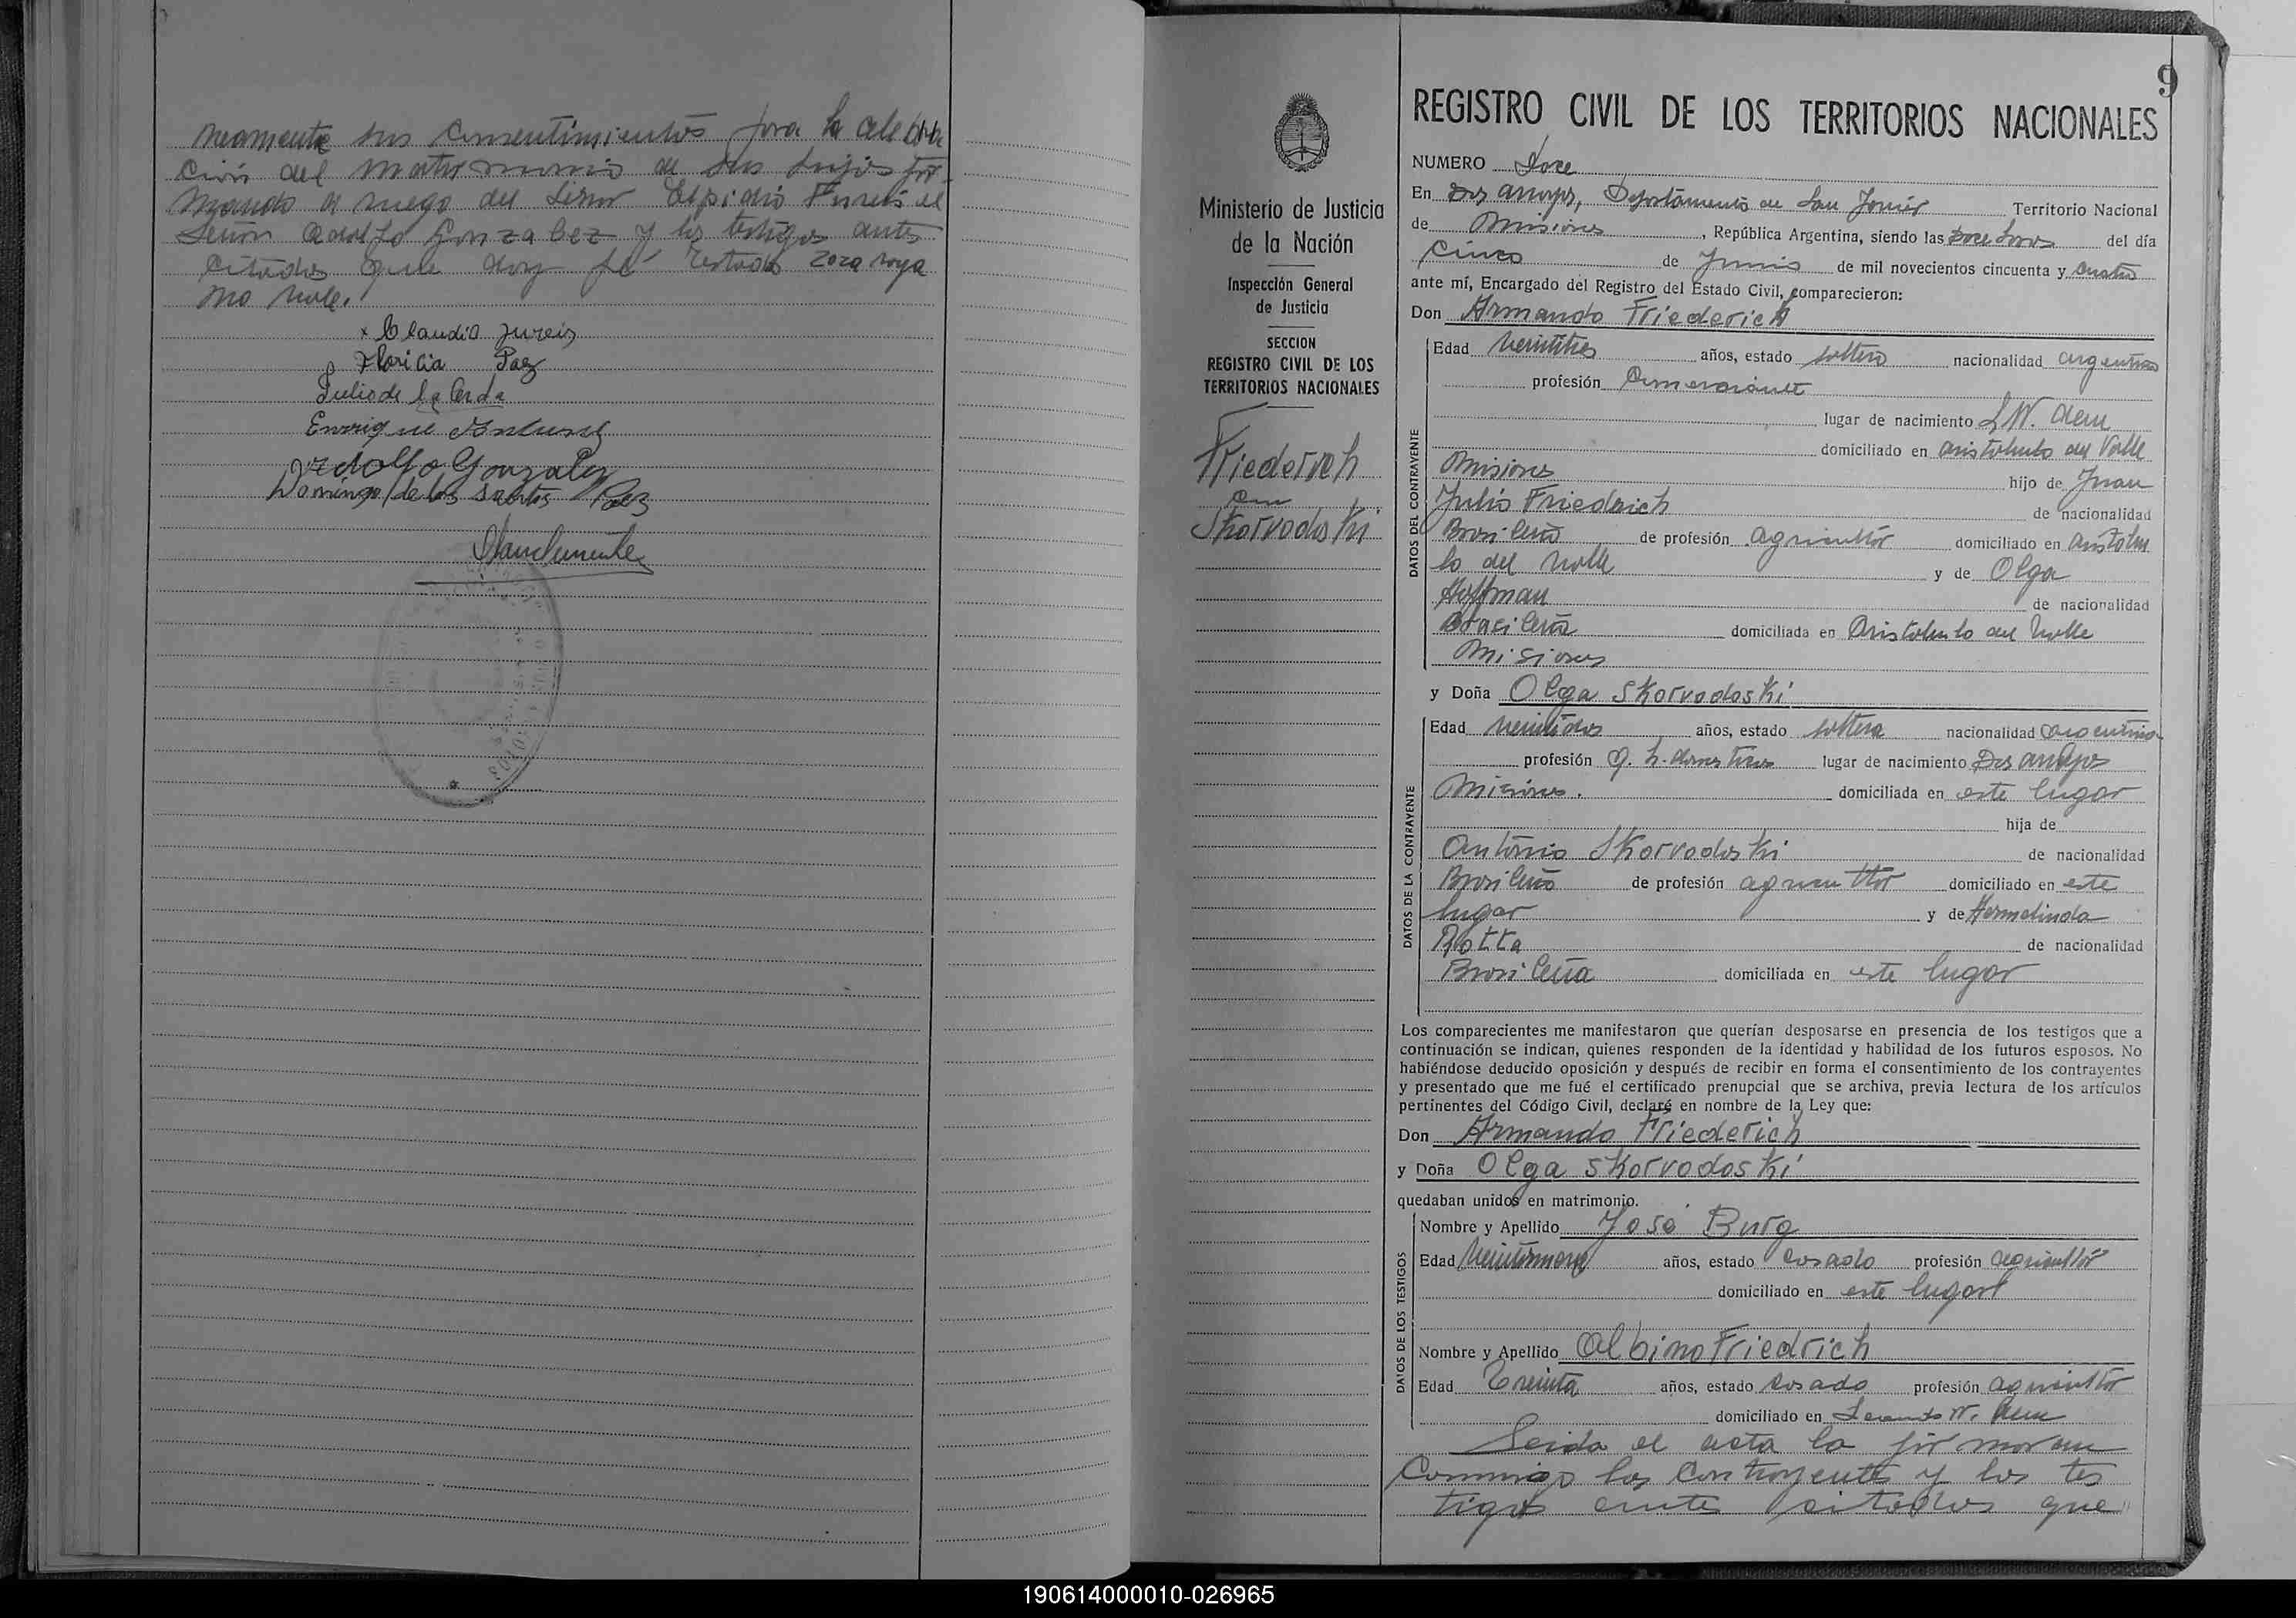 neamente sus consentimientos para la celebra
ción del matrimonio de sus hijos fir
mando a ruego del señor Elpidio
señor Adolfo Gonzalez y los testigos antes
citados que doy fé Testado
no vale.
x Claudio
Floricia Paez
Julio de la Cerda
Enrique
Adolfo Gonzalez
Domingo de los Santos Paez
9
Ministerio de Justicia
de la Nación
Inspección General
de Justicia
SECCION
REGISTRO CIVIL DE LOS
TERRITORIOS NACIONALES
Friederich
con
Skorvodoski
REGISTRO CIVIL DE LOS TERRITORIOS NACIONALES
NUMERO Doce
En Dos arroyos, Departamento de San Javier Territorio Nacional
de Misiones, República Argentina, siendo las doce horas del día
cinco de Junio de mil novecientos cincuenta y cuatro
ante mí, Encargado del Registro del Estado Civil, comparecieron:
Don Armando Friederich
DATOS DEL CONTRAYENTE
Edad veintitres años, estado soltero nacionalidad argentino
profesión comerciante
lugar de nacimiento L.N. Alem
domiciliado en aristobulo del Valle
Misiones hijo de Juan
Julio Friedrich de nacionalidad
Brasileño de profesión agricultor domiciliado en Aristobu
lo del Valle y de Olga
Hoffman de nacionalidad
Brasileña domiciliada en Aristobulo del Valle
Misiones
y Doña Olga Skorvodoski
DATOS DE LA CONTRAYENTE
Edad veintidos años, estado soltera nacionalidad argentina
profesión q. h. domesticos lugar de nacimiento Dos arroyos
Misiones. domiciliada en este lugar
hija de
Antonio Skorvodoski de nacionalidad
Brasileño de profesión agricultor domiciliado en este
lugar y de Hermelinda
Rotta de nacionalidad
Brasileña domiciliada en este lugar
Los comparecientes me manifestaron que querían desposarse en presencia de los testigos que a
continuación se indican, quienes responden de la identidad y habilidad de los futuros esposos. No
habiéndose deducido oposición y después de recibir en forma el consentimiento de los contrayentes
y presentado que me fué el certificado prenupcial que se archiva, previa lectura de los artículos
pertinentes del Código Civil, declaré en nombre de la Ley que:
Don Armando Friederich
y Doña Olga Skorvodoski
quedaban unidos en matrimonio.
DATOS DE LOS TESTIGOS
Nombre y Apellido José Burg
Edad veintinueve años, estado casado profesión agricultor
domiciliado en este lugar
Nombre y Apellido Albino Friedrich
Edad Treinta años, estado casado profesión agricultor
domiciliado en Leandro N. Alem
Leida el acta la firmaron
conmigo los contrayentes y los tes
tigos antes citados que
190614000010-026965